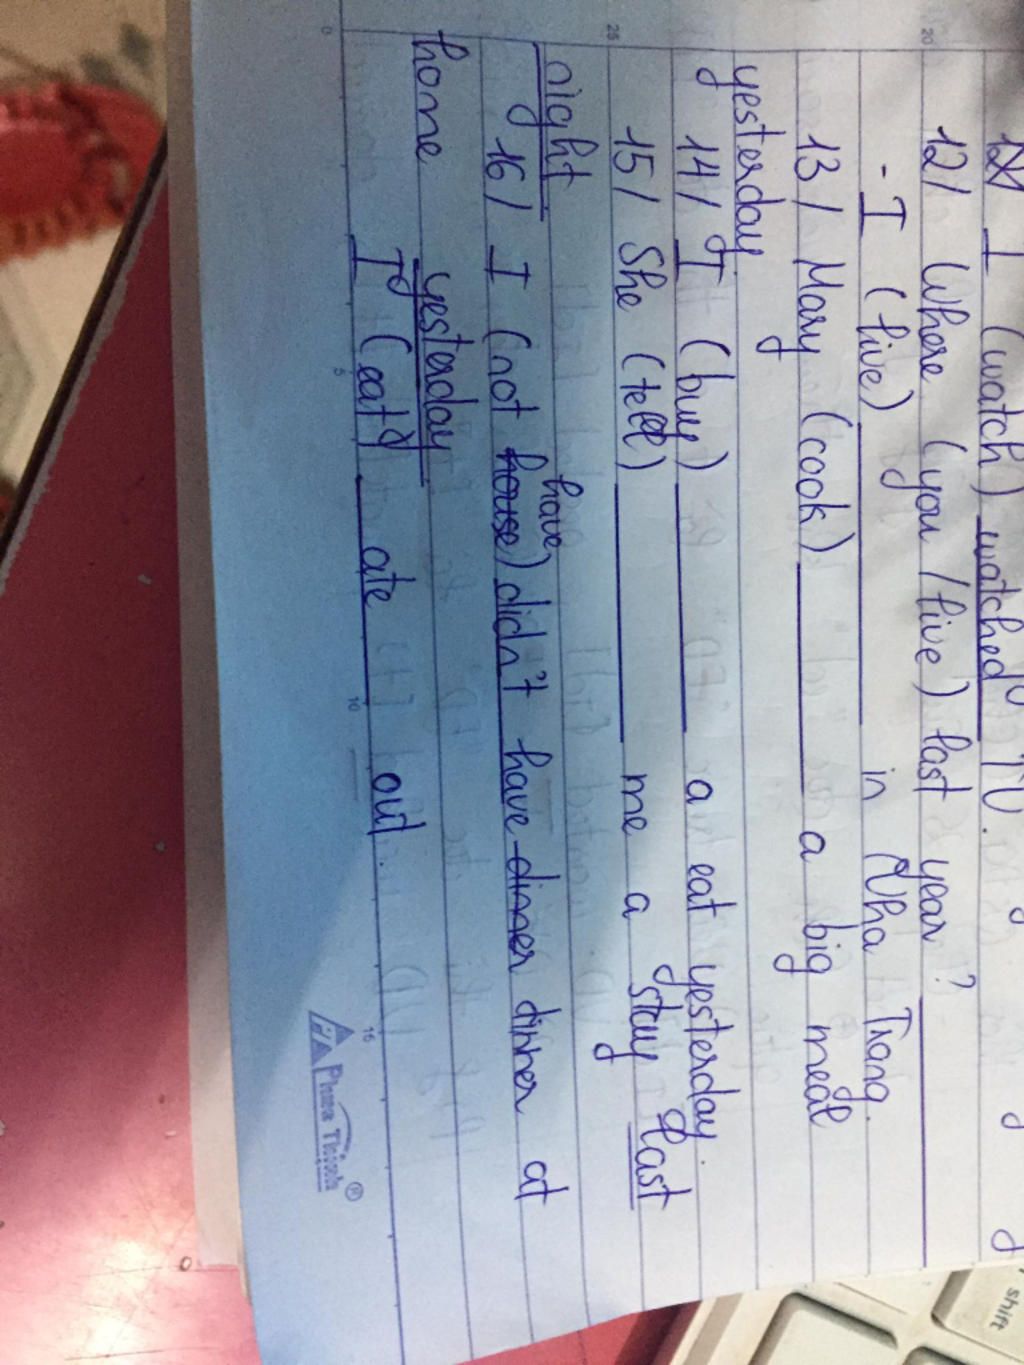 I (watch) watched TV.
12/ Where (you/live) last year?
- I (live) in Nha Trang.
13/ Mary (cook) a big meal
yesterday
14/ I (buy) a eat yesterday.
15/ She (tell) me a stay last
night
have
16/ I (not house) didn't have dinner dinner at
home yesterday
I (eat) ate out.
0 5 10 15 20 25
Phua Thinh ®
shift